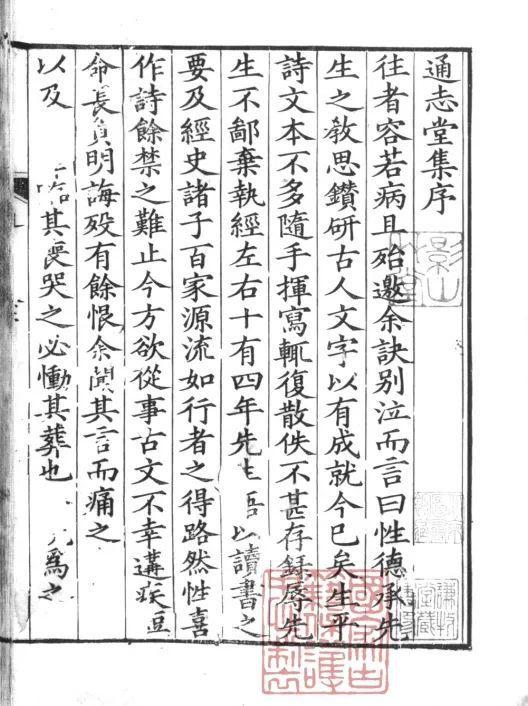 通志堂集序
往者容若病且殆邀余訣別泣而言曰性德承先
生之教思鑽研古人文字以有成就今已矣生平
詩文本不多隨手揮寫輒復散佚不甚存録辱先
生不鄙棄執經左右十有四年先生語以讀書之
要及經史諸子百家源流如行者之得路然性喜
作詩餘禁之難止今方欲從事古文不幸遘疾短
命長負明誨歿有餘恨余聞其言而痛之
以及臨其喪哭之必慟其葬也爲之
影山
謙牧堂藏書記